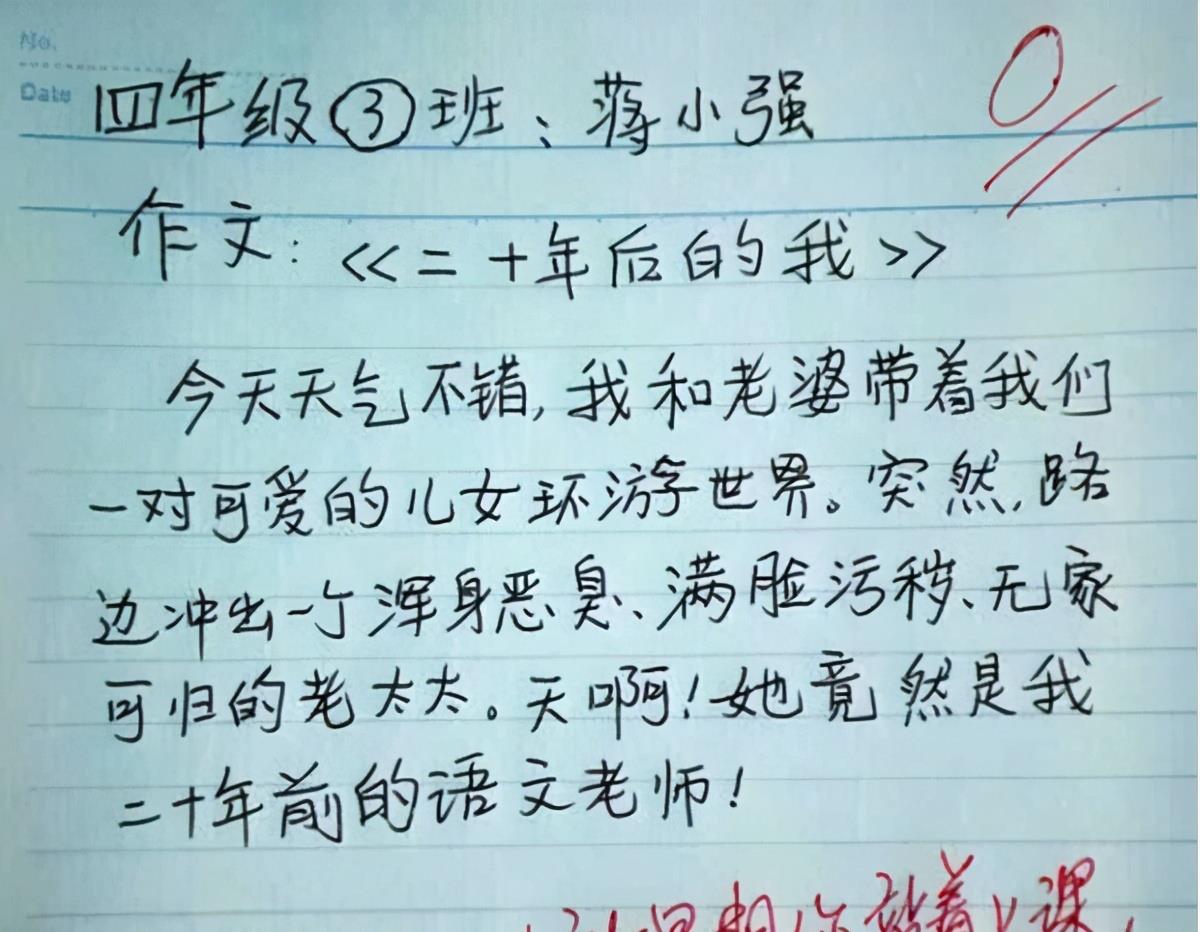 No.
Date
四年级③班：蒋小强
0
作文：<<二十年后的我>>
今天天气不错，我和老婆带着我们
一对可爱的儿女环游世界。突然，路
边冲出一个浑身恶臭、满脸污秽、无家
可归的老太太。天啊！她竟然是我
二十年前的语文老师！
站着上课，